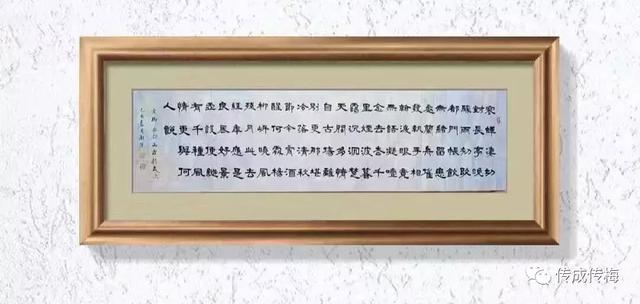 寒蟬凄切
對長亭晚
驟雨初歇
都門帳飲
無緒留戀
處蘭舟催
發執手相
看淚眼竟
無語凝噎
念去去千
里煙波暮
靄沉沉楚
天闊多情
自古傷離
別更那堪
冷落清秋
節今宵酒
醒何處楊
柳岸曉風
殘月此去
經年應是
良辰好景
虛設便縱
有千種風
情更與何
人說
传成传梅